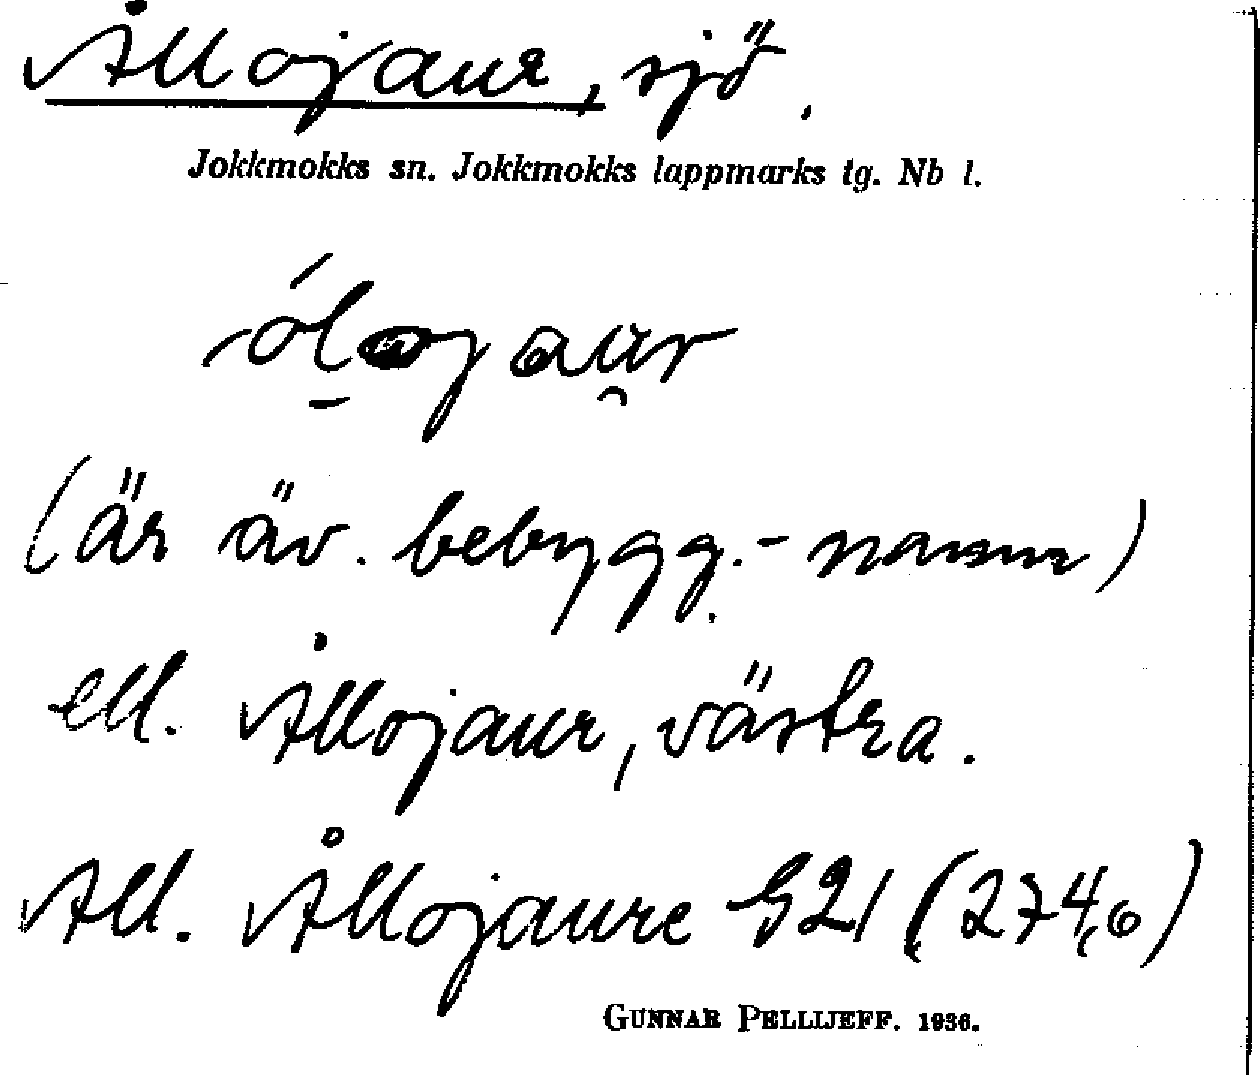 Ållojaur, sjö.
Jokkmokks sn. Jokkmokks lappmarks tg. Nb l.
(är äv. bebygg.-namn)
ell. Ållojaur, västra.
All. Ållojaure G21 (274,0)
GUNNAR PELLIJEFF. 1936.